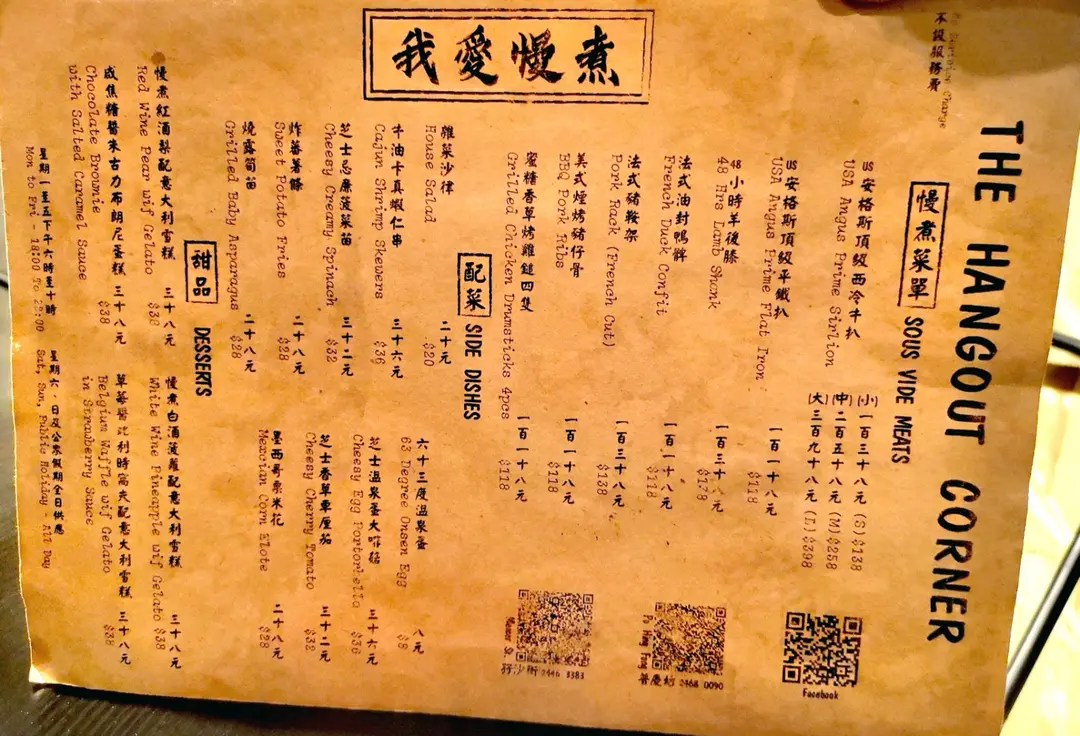 我愛慢煮
THE HANGOUT CORNER
不設服務費
慢煮菜單 SOUS VIDE MEATS
US安格斯頂級西冷牛扒 (小) 一百三十八元 (S) $138
USA Angus Prime Sirlion (中) 二百五十八元 (M) $258
(大) 三百九十八元 (L) $398
US安格斯頂級平鐵扒 一百一十八元
USA Angus Prime Flat Iron $118
48小時羊後膝
48 Hrs Lamb Shank
法式油封鴨髀 一百一十八元
French Duck Confit $118
法式豬鞍架 一百三十八元
Pork Rack (French Cut) $138
美式煙烤豬仔骨 一百一十八元
BBQ Pork Ribs $118
蜜糖香草烤雞鎚四隻 一百一十八元
Grilled Chicken Drumsticks 4pcs $118
Facebook
Po Hing Fong
普慶坊 2468 0090
Mercer St.
孖沙街
配菜 SIDE DISHES
雜菜沙律 二十元
House Salad $20
牛油卡真蝦仁串 三十六元
Cajun Shrimp Skewers $36
芝士忌廉菠菜苗 三十二元
Cheesy Creamy Spinach $32
炸蕃薯條 二十八元
Sweet Potato Fries $28
燒露筍苗 二十八元
Grilled Baby Asparagus $28
六十三度溫泉蛋 八元
63 Degree Onsen Egg $8
芝士溫泉蛋大啡菇 三十六元
Cheesy Egg Portobello $36
芝士香草車厘茄 三十二元
Cheesy Cherry Tomato $32
墨西哥粟米花 二十八元
Mexcian Corn Elote $28
甜品 DESSERTS
慢煮紅酒梨配意大利雪糕 三十八元
Red Wine Pear wif Gelato $38
成焦糖醬朱古力布朗尼蛋糕 三十八元
Chocolate Brownie $38
with Salted Caramel Sauce
慢煮白酒菠蘿配意大利雪糕 三十八元
White Wine Pineapple wif Gelato $38
草莓醬比利時窩夾配意大利雪糕 三十八元
Belgium Waffle wif Gelato $38
in Strawberry Sauce
星期一至五下午六時至十時
Mon to Fri - 18:00 To 22:00
星期六、日及公眾假期全日供應
Sat, Sun, Publis Holiday - All Day